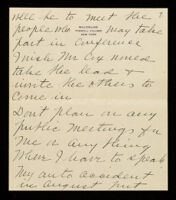 well be to meet the
people who may take
part in conference
I wish Mr Cox would
take the lead &
invite the others to
come in
Dont plan on any
public meetings for
me or any thing
where I have to speak
My auto accident
in August put